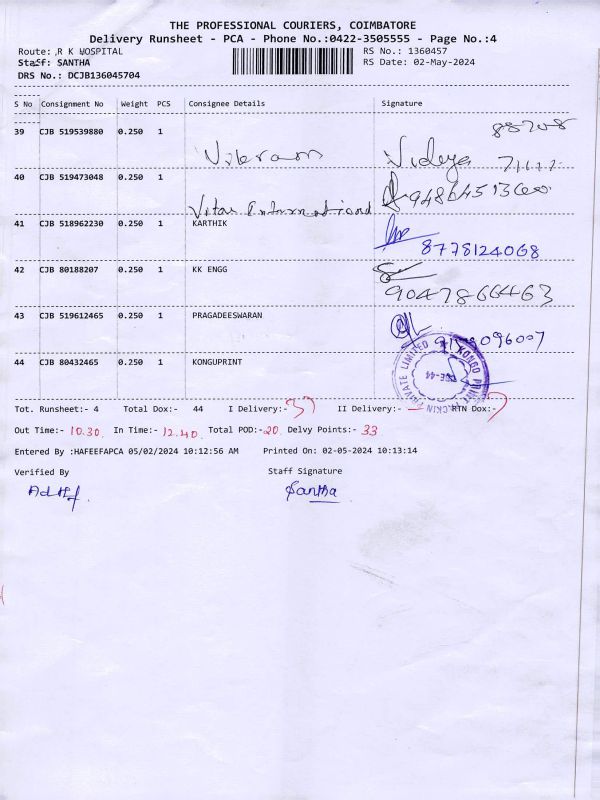 THE PROFESSIONAL COURIERS, COIMBATORE
Delivery Runsheet - PCA - Phone No.:0422-3505555 - Page No.:4
Route: R K HOSPITAL RS No.: 1360457
Staff: SANTHA RS Date: 02-May-2024
DRS No.: DCJB136045704
S No Consignment No Weight PCS Consignee Details Signature
39 CJB 519539880 0.250 1 Vikram Vidya
40 CJB 519473048 0.250 1 International
41 CJB 518962230 0.250 1 KARTHIK 8778124068
42 CJB 80188207 0.250 1 KK ENGG 9047866463
43 CJB 519612465 0.250 1 PRAGADEESWARAN
44 CJB 80432465 0.250 1 KONGUPRINT
Tot. Runsheet:- 4 Total Dox:- 44 I Delivery:- 37 II Delivery:- RTN Dox:- 7
Out Time:- 10.30 In Time:- 12.40 Total POD:- 20 Delvy Points:- 33
Entered By :HAFEEFAPCA 05/02/2024 10:12:56 AM Printed On: 02-05-2024 10:13:14
Verified By Staff Signature
Santha